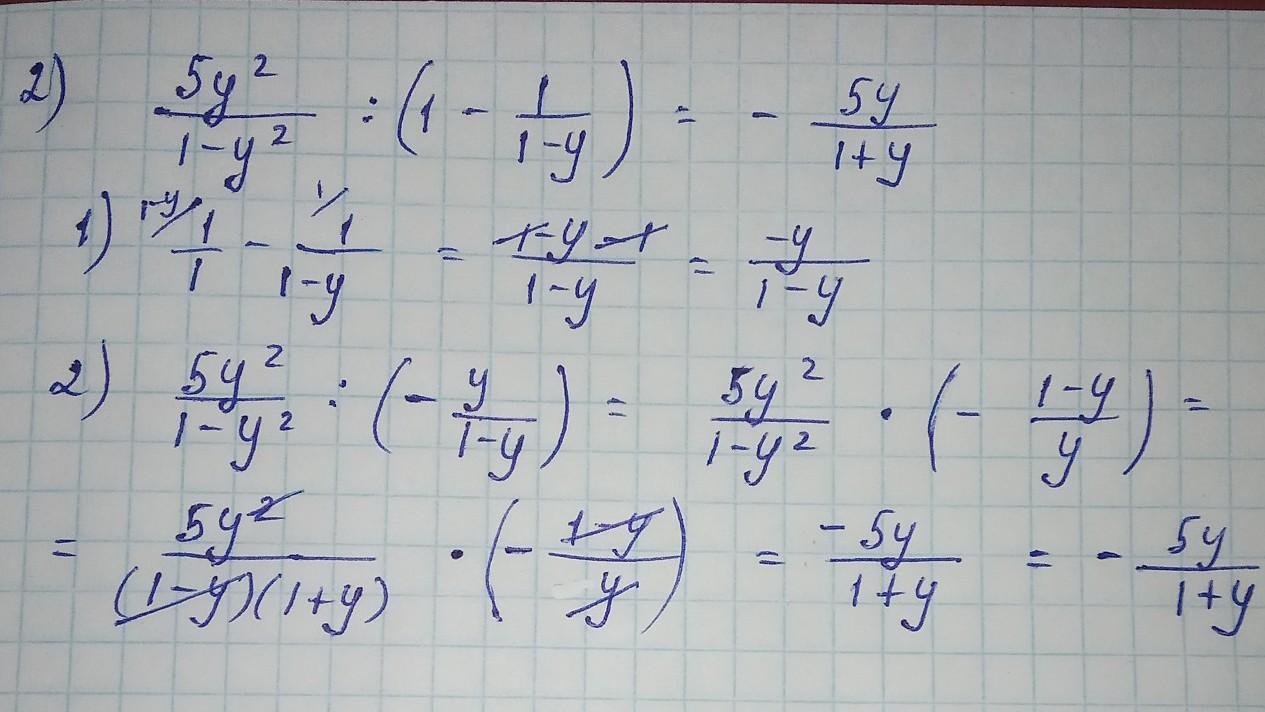 2) 5y²/(1-y²) : (1 - 1/(1-y)) = - 5y/(1+y)
1) 1-y/ 1/1 - 1/ 1/(1-y) = (1-y-1)/(1-y) = -y/(1-y)
2) 5y²/(1-y²) : (- y/(1-y)) = 5y²/(1-y²) · (- (1-y)/y) =
= 5y²/((1-y)(1+y)) · (- (1-y)/y) = -5y/(1+y) = - 5y/(1+y)